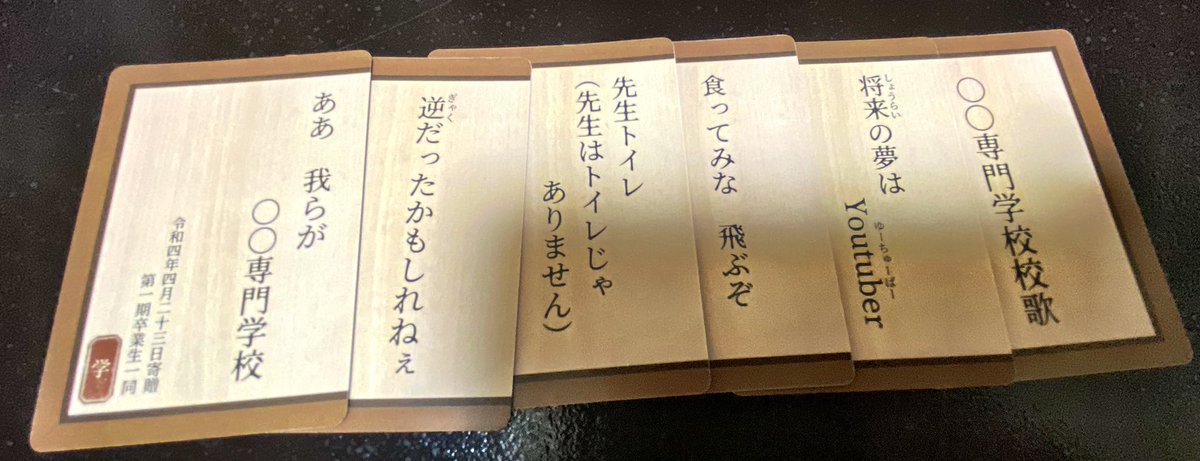 〇〇専門学校校歌
将来の夢は Youtuber
しょうらい
ゆーちゅーばー
食ってみな 飛ぶぞ
先生トイレ
(先生はトイレじゃ
ありません)
逆だったかもしれねぇ
ぎゃく
ああ 我らが
〇〇専門学校
令和四年四月二十三日寄贈
第一期卒業生一同
学